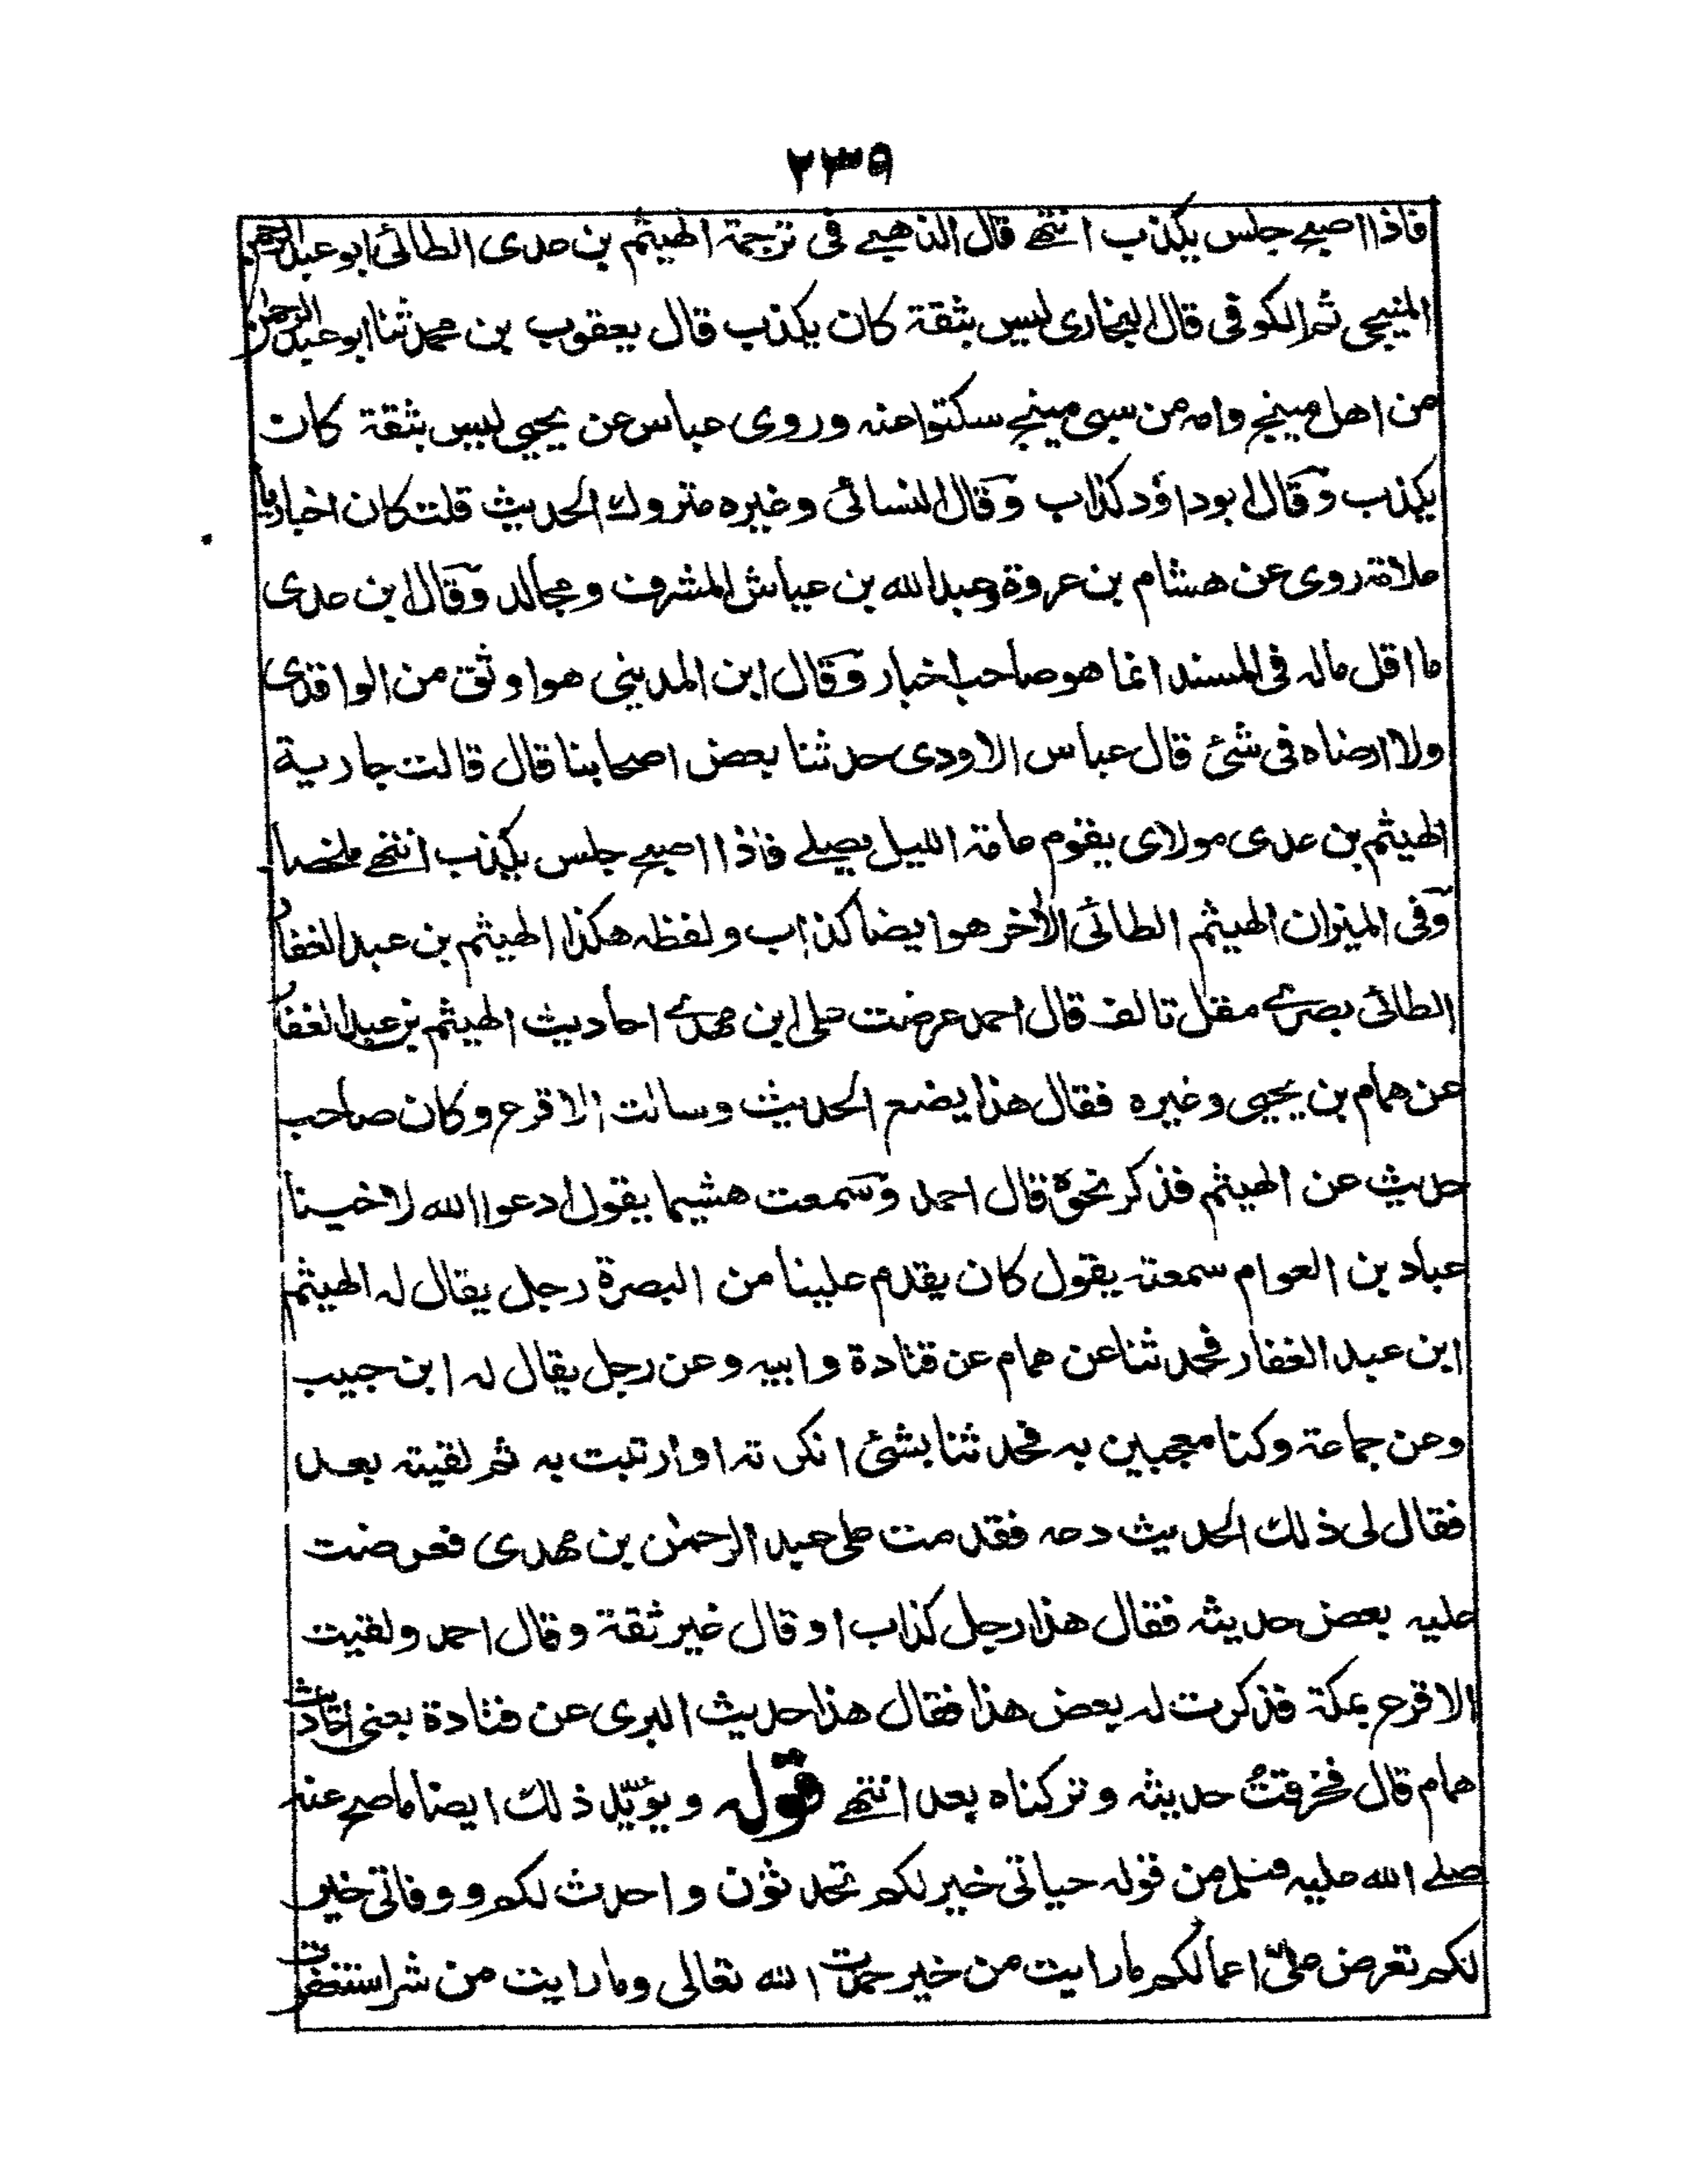 ٢٣٩
فاذا اصبح جلس يكذب انتهى قال الذهبي في ترجمة الهيثم بن عدى الطائى ابو عبد الرحمن
المنبجى ثم الكوفى قال البخارى ليس بثقة كان يكذب قال يعقوب بن محمد ثنا ابو عبد الرحمن
من اهل مينج وامه من سبى مينج سكتوا عنه وروى عباس عن يحيى ليس بثقة كان
يكذب وقال ابو داؤد كذاب وقال النسائى وغيره متروك الحديث قلت كان اخباريا
علامة روى عن هشام بن عروة وعبد الله بن عياش المشرف ومجالد وقال ابن عدى
ما اقل ماله فى المسند انما هو صاحب اخبار وقال ابن المدينى هو اوثق من الواقدى
ولا ارضاه فى شئ قال عباس الاودى حدثنا بعض اصحابنا قال قالت جارية
الهيثم بن عدى مولاى يقوم عامة الليل يصلے فاذا اصبح جلس يكذب انتهے ملخصا
وفى الميزان الهيثم الطائى الأخر هو ايضا كذاب ولفظه هكذا الهيثم بن عبد الغفار
الطائى بصرے مقل تالف قال احمد عرضت على ابن مهدے احاديث الهيثم بن عبد الغفار
عن همام بن يحيى وغيره فقال هذا يضع الحديث وسالت الاقرع وكان صاحب
حديث عن الهيثم فذكر نحوه قال احمد وسمعت هشيما يقول ادعوا الله لاخينا
عباد بن العوام سمعته يقول كان يقدم علينا من البصرة رجل يقال له الهيثم
ابن عبد الغفار فحدثنا عن همام عن قتادة وابيه وعن رجل يقال له ابن جبيب
وعن جماعة وكنا معجبين به فحدثنا بشئ انكرته او ارتبت به ثم لقيته بعد
فقال لى ذلك الحديث دعه فقدمت على عبد الرحمٰن بن مهدى فعرضت
عليه بعض حديثه فقال هذا رجل كذاب او قال غير ثقة وقال احمد ولقيت
الاقرع بمكة فذكرت له بعض هذا فقال هذا حديث البرى عن قتادة يعنى احاديث
همام قال فخرقتُ حديثه وتركناه بعد انتهے قوله ويؤيّد ذلك ايضا ما صح عنه
صلے الله عليه وسلم من قوله حياتى خير لكم تحدثون واحدث لكم ووفاتى خير
لكم تعرض علىّ اعمالكم ما رايت من خير حمدت الله تعالى وما رايت من شر استغفرت